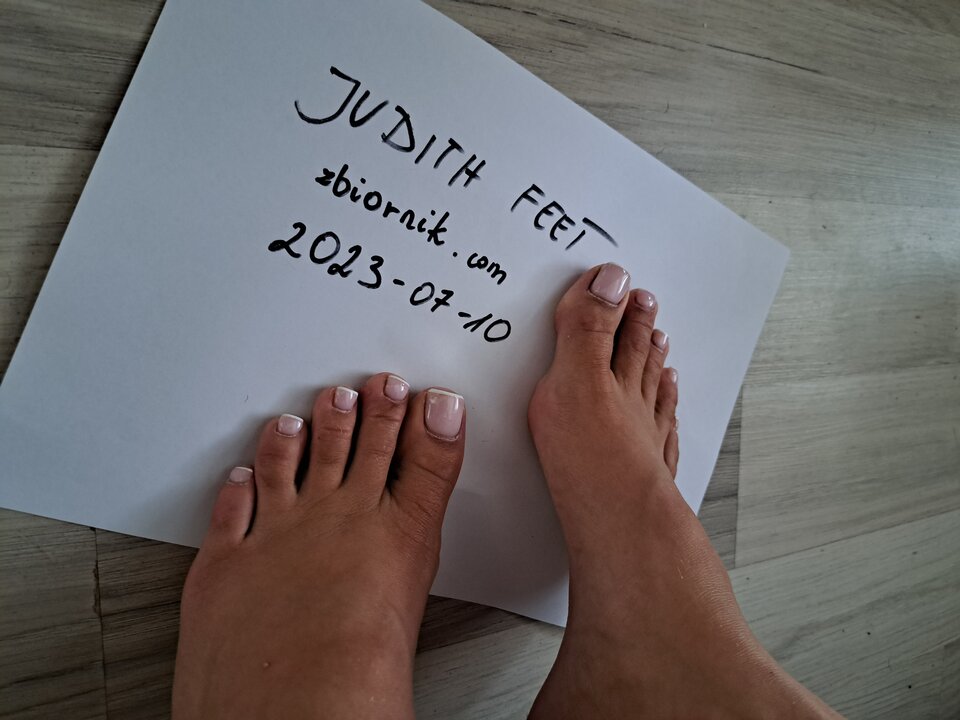 JUDITH FEET
zbiornik.com
2023-07-10